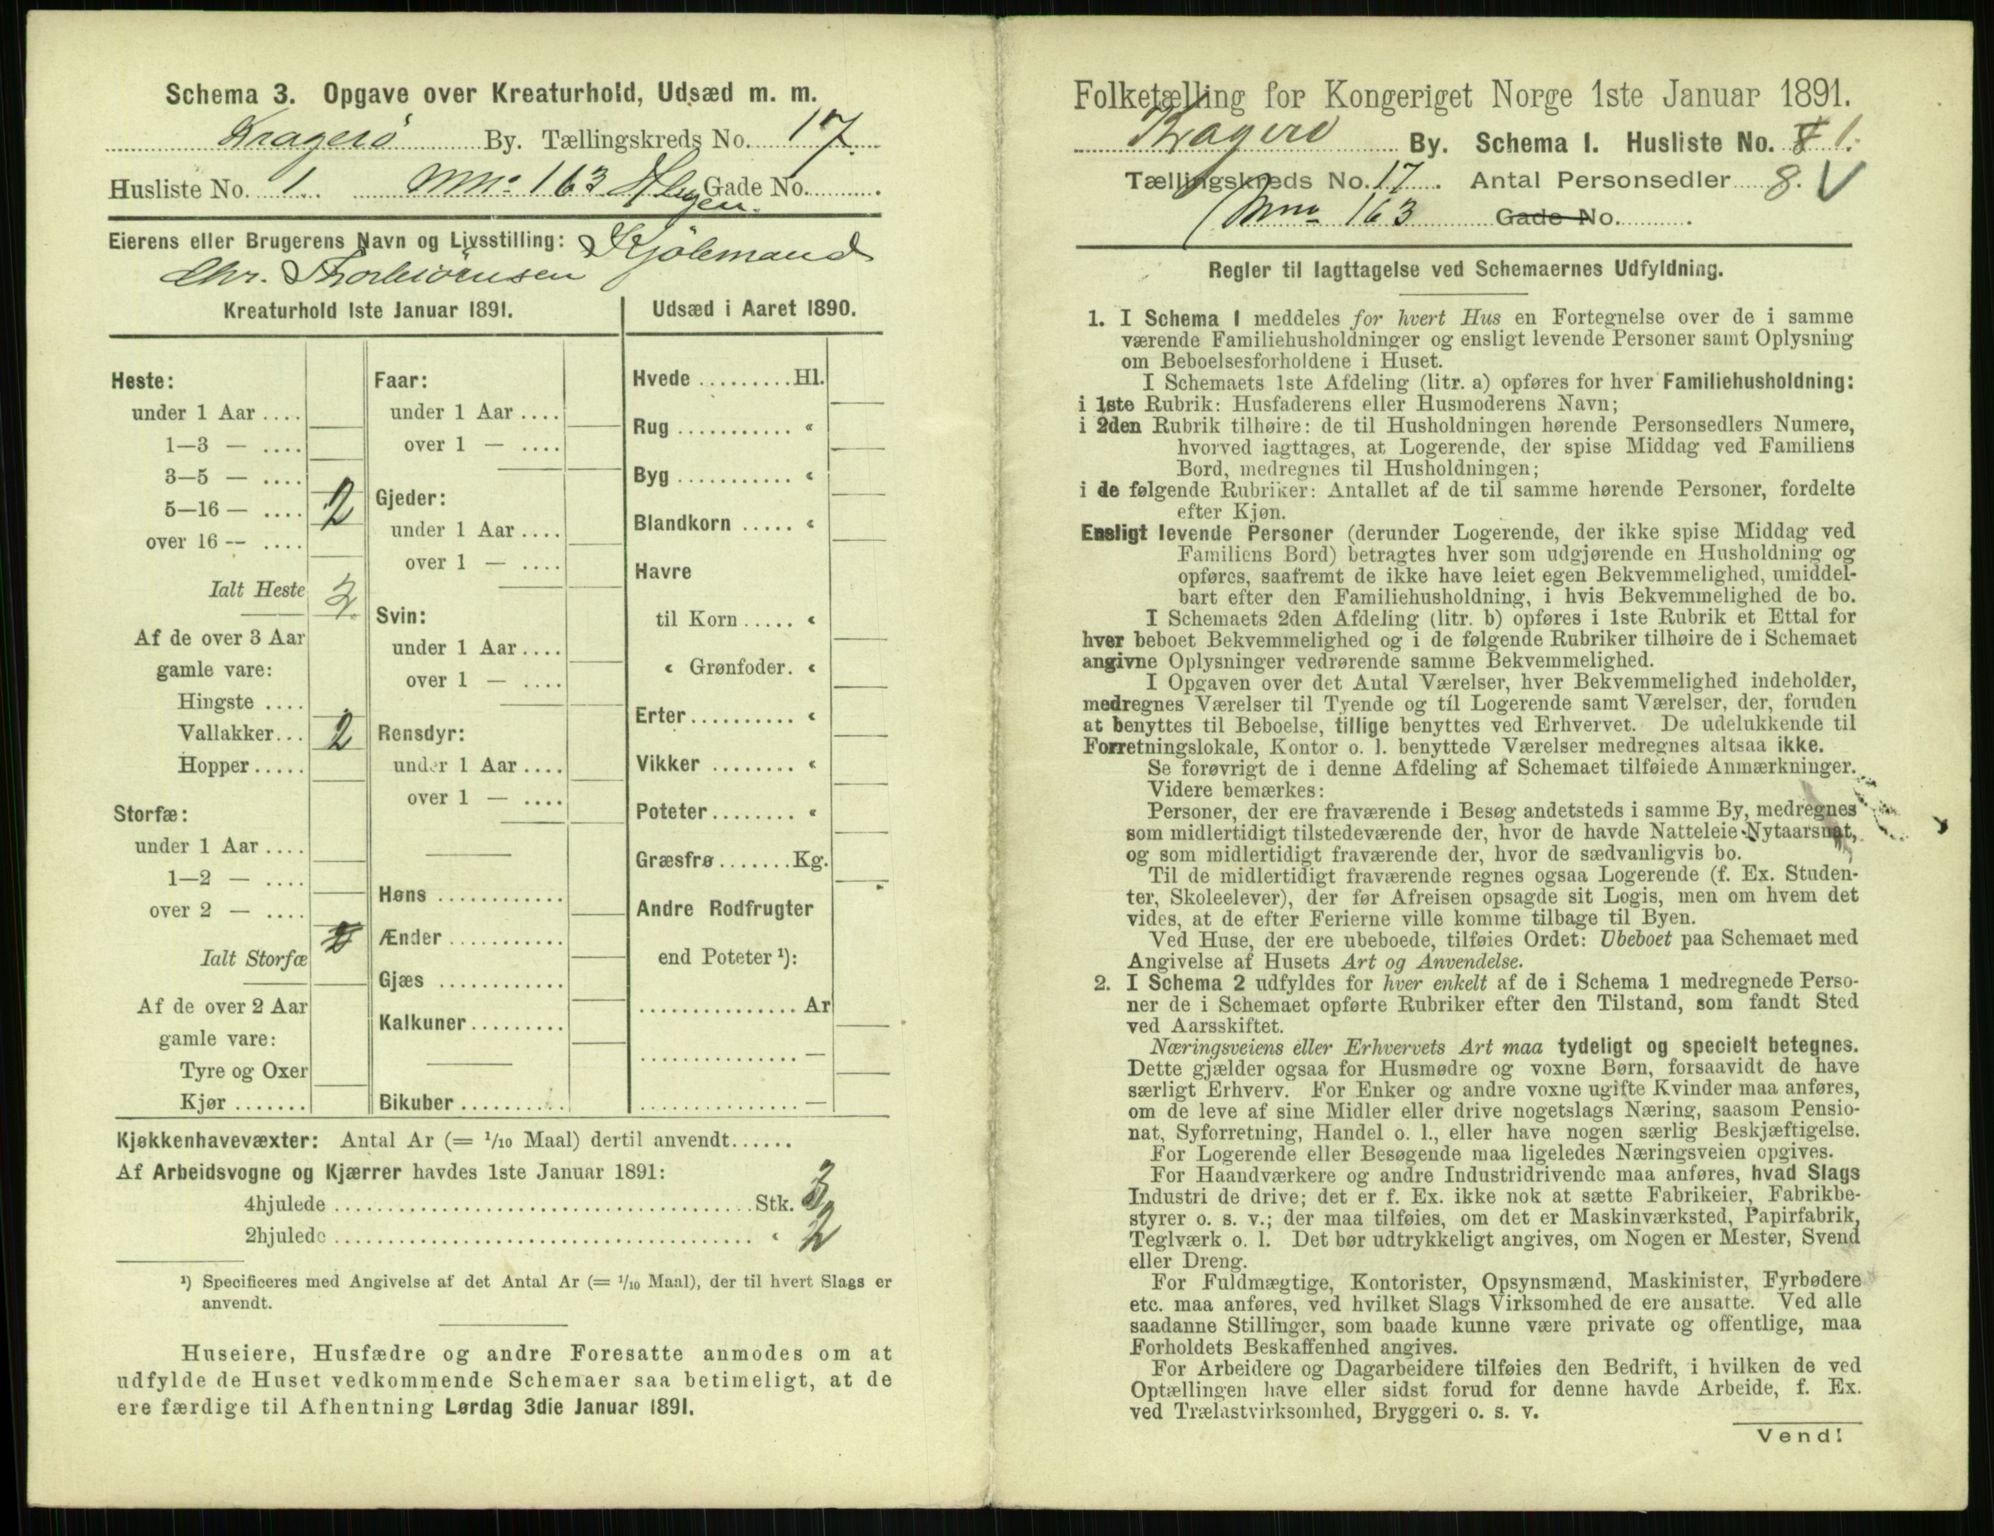 Schema 3. Opgave over Kreaturhold, Udsæd m. m.
Kragerö By. Tællingskreds No. 17.
Husliste No. 1. Mno 163 Gade No.
Eierens eller Brugerens Navn og Livsstilling: Kjölemand
Chr. Thorbiörnsen
Kreaturhold 1ste Januar 1891.
Heste:
under 1 Aar ....
1—3 — ....
3—5 — ....
5—16 — .... 2
over 16 — ....
Ialt Heste 2
Af de over 3 Aar
gamle vare:
Hingste ....
Vallakker... 2
Hopper.....
Storfæ:
under 1 Aar ....
1—2 — ....
over 2 — ....
Ialt Storfæ
Af de over 2 Aar
gamle vare:
Tyre og Oxer
Kjør .......
Faar:
under 1 Aar ....
over 1 — ....
Gjeder:
under 1 Aar ....
over 1 — ....
Svin:
under 1 Aar ....
over 1 — ....
Rensdyr:
under 1 Aar ....
over 1 — ....
Høns ............
Ænder ..........
Gjæs ............
Kalkuner .........
Bikuber ..........
Udsæd i Aaret 1890.
Hvede .........Hl.
Rug ........... «
Byg ........... «
Blandkorn ..... «
Havre
til Korn ..... «
« Grønfoder. «
Erter.......... «
Vikker ........ «
Poteter........ «
Græsfrø .......Kg.
Andre Rodfrugter
end Poteter ¹):
............... Ar
............... —
............... —
Kjøkkenhavevæxter: Antal Ar (= 1/10 Maal) dertil anvendt......
Af Arbeidsvogne og Kjærrer havdes 1ste Januar 1891:
4hjulede ........ Stk. 3
2hjulede ........ « 2
¹) Specificeres med Angivelse af det Antal Ar (= 1/10 Maal), der til hvert Slags er
anvendt.
Huseiere, Husfædre og andre Foresatte anmodes om at
udfylde de Huset vedkommende Schemaer saa betimeligt, at de
ere færdige til Afhentning Lørdag 3die Januar 1891.
Folketælling for Kongeriget Norge 1ste Januar 1891.
Kragerö By. Schema I. Husliste No. 1.
Tællingskreds No. 17. Antal Personsedler 8. V
Mno 163 Gade No.
Regler til Iagttagelse ved Schemaernes Udfyldning.
1. I Schema I meddeles for hvert Hus en Fortegnelse over de i samme
værende Familiehusholdninger og ensligt levende Personer samt Oplysning
om Beboelsesforholdene i Huset.
I Schemaets 1ste Afdeling (litr. a) opføres for hver Familiehusholdning:
i 1ste Rubrik: Husfaderens eller Husmoderens Navn;
i 2den Rubrik tilhøire: de til Husholdningen hørende Personsedlers Numere,
hvorved iagttages, at Logerende, der spise Middag ved Familiens
Bord, medregnes til Husholdningen;
i de følgende Rubriker: Antallet af de til samme hørende Personer, fordelte
efter Kjøn.
Ensligt levende Personer (derunder Logerende, der ikke spise Middag ved
Familiens Bord) betragtes hver som udgjørende en Husholdning og
opføres, saafremt de ikke have leiet egen Bekvemmelighed, umiddel-
bart efter den Familiehusholdning, i hvis Bekvemmelighed de bo.
I Schemaets 2den Afdeling (litr. b) opføres i 1ste Rubrik et Ettal for
hver beboet Bekvemmelighed og i de følgende Rubriker tilhøire de i Schemaet
angivne Oplysninger vedrørende samme Bekvemmelighed.
I Opgaven over det Antal Værelser, hver Bekvemmelighed indeholder,
medregnes Værelser til Tyende og til Logerende samt Værelser, der, foruden
at benyttes til Beboelse, tillige benyttes ved Erhvervet. De udelukkende til
Forretningslokale, Kontor o. l. benyttede Værelser medregnes altsaa ikke.
Se forøvrigt de i denne Afdeling af Schemaet tilføiede Anmærkninger.
Videre bemærkes:
Personer, der ere fraværende i Besøg andetsteds i samme By, medregnes
som midlertidigt tilstedeværende der, hvor de havde Natteleie Nytaarsnat,
og som midlertidigt fraværende der, hvor de sædvanligvis bo.
Til de midlertidigt fraværende regnes ogsaa Logerende (f. Ex. Studen-
ter, Skoleelever), der før Afreisen opsagde sit Logis, men om hvem det
vides, at de efter Ferierne ville komme tilbage til Byen.
Ved Huse, der ere ubeboede, tilføies Ordet: Ubeboet paa Schemaet med
Angivelse af Husets Art og Anvendelse.
2. I Schema 2 udfyldes for hver enkelt af de i Schema 1 medregnede Perso-
ner de i Schemaet opførte Rubriker efter den Tilstand, som fandt Sted
ved Aarsskiftet.
Næringsveiens eller Erhvervets Art maa tydeligt og specielt betegnes.
Dette gjælder ogsaa for Husmødre og voxne Børn, forsaavidt de have
særligt Erhverv. For Enker og andre voxne ugifte Kvinder maa anføres,
om de leve af sine Midler eller drive nogetslags Næring, saasom Pensio-
nat, Syforretning, Handel o. l., eller have nogen særlig Beskjæftigelse.
For Logerende eller Besøgende maa ligeledes Næringsveien opgives.
For Haandværkere og andre Industridrivende maa anføres, hvad Slags
Industri de drive; det er f. Ex. ikke nok at sætte Fabrikeier, Fabrikbe-
styrer o. s. v.; der maa tilføies, om det er Maskinværksted, Papirfabrik,
Teglværk o. l. Det bør udtrykkeligt angives, om Nogen er Mester, Svend
eller Dreng.
For Fuldmægtige, Kontorister, Opsynsmænd, Maskinister, Fyrbødere
etc. maa anføres, ved hvilket Slags Virksomhed de ere ansatte. Ved alle
saadanne Stillinger, som baade kunne være private og offentlige, maa
Forholdets Beskaffenhed angives.
For Arbeidere og Dagarbeidere tilføies den Bedrift, i hvilken de ved
Optællingen have eller sidst forud for denne havde Arbeide, f. Ex.
ved Trælastvirksomhed, Bryggeri o. s. v.
Vend!